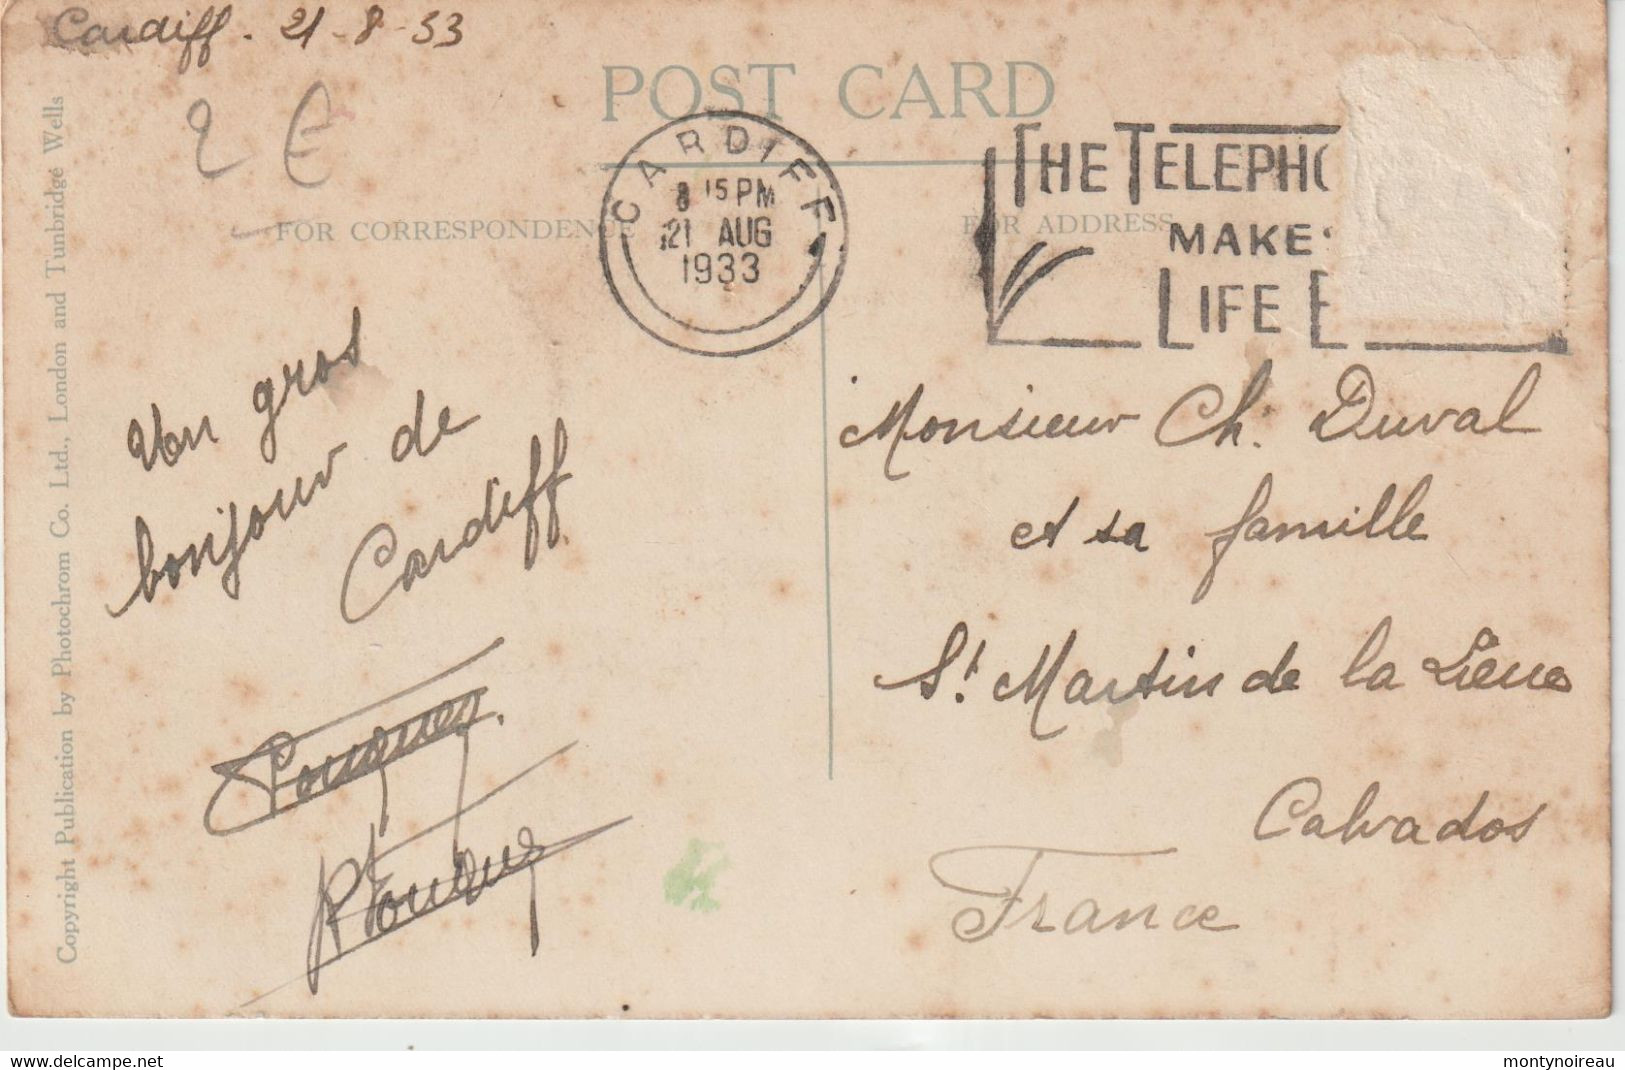 Cardiff. 21-8-33
2 €
POST CARD
CARDIFF
8 15 PM
21 AUG
1933
THE TELEPHO
MAKES
LIFE E
FOR CORRESPONDENCE
FOR ADDRESS
Copyright Publication by Photochrom Co. Ltd., London and Tunbridge Wells
Un gros
bonjour de
Cardiff
Monsieur Ch. Duval
et sa famille
St Martin de la Lieue
Calvados
France
www.delcampe.net
montynoireau